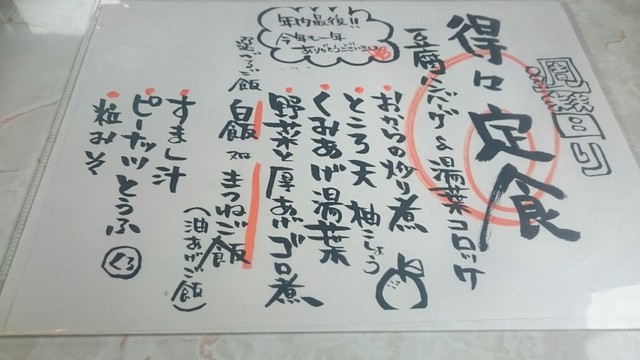 周替り
得々定食
豆腐ハンバーグ&湯葉コロッケ
おからの炒り煮
ところ天 柚こしょう
くみあげ湯葉
野菜と厚あげゴロ煮
白飯 or きつねご飯
(油あげご飯)
すまし汁
ピーナッツとうふ くろ
粒みそ
年内最後!!
今年も一年
ありがとうございました